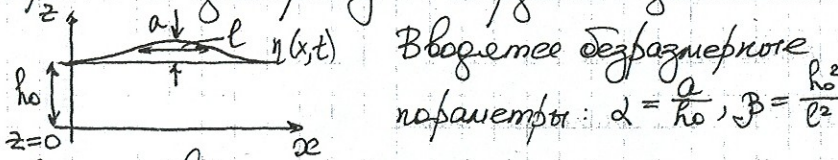 z
a
l
η(x,t)
h₀
z=0
x
Вводятся безразмерные
параметры: α = a/h₀, β = h₀²/l²